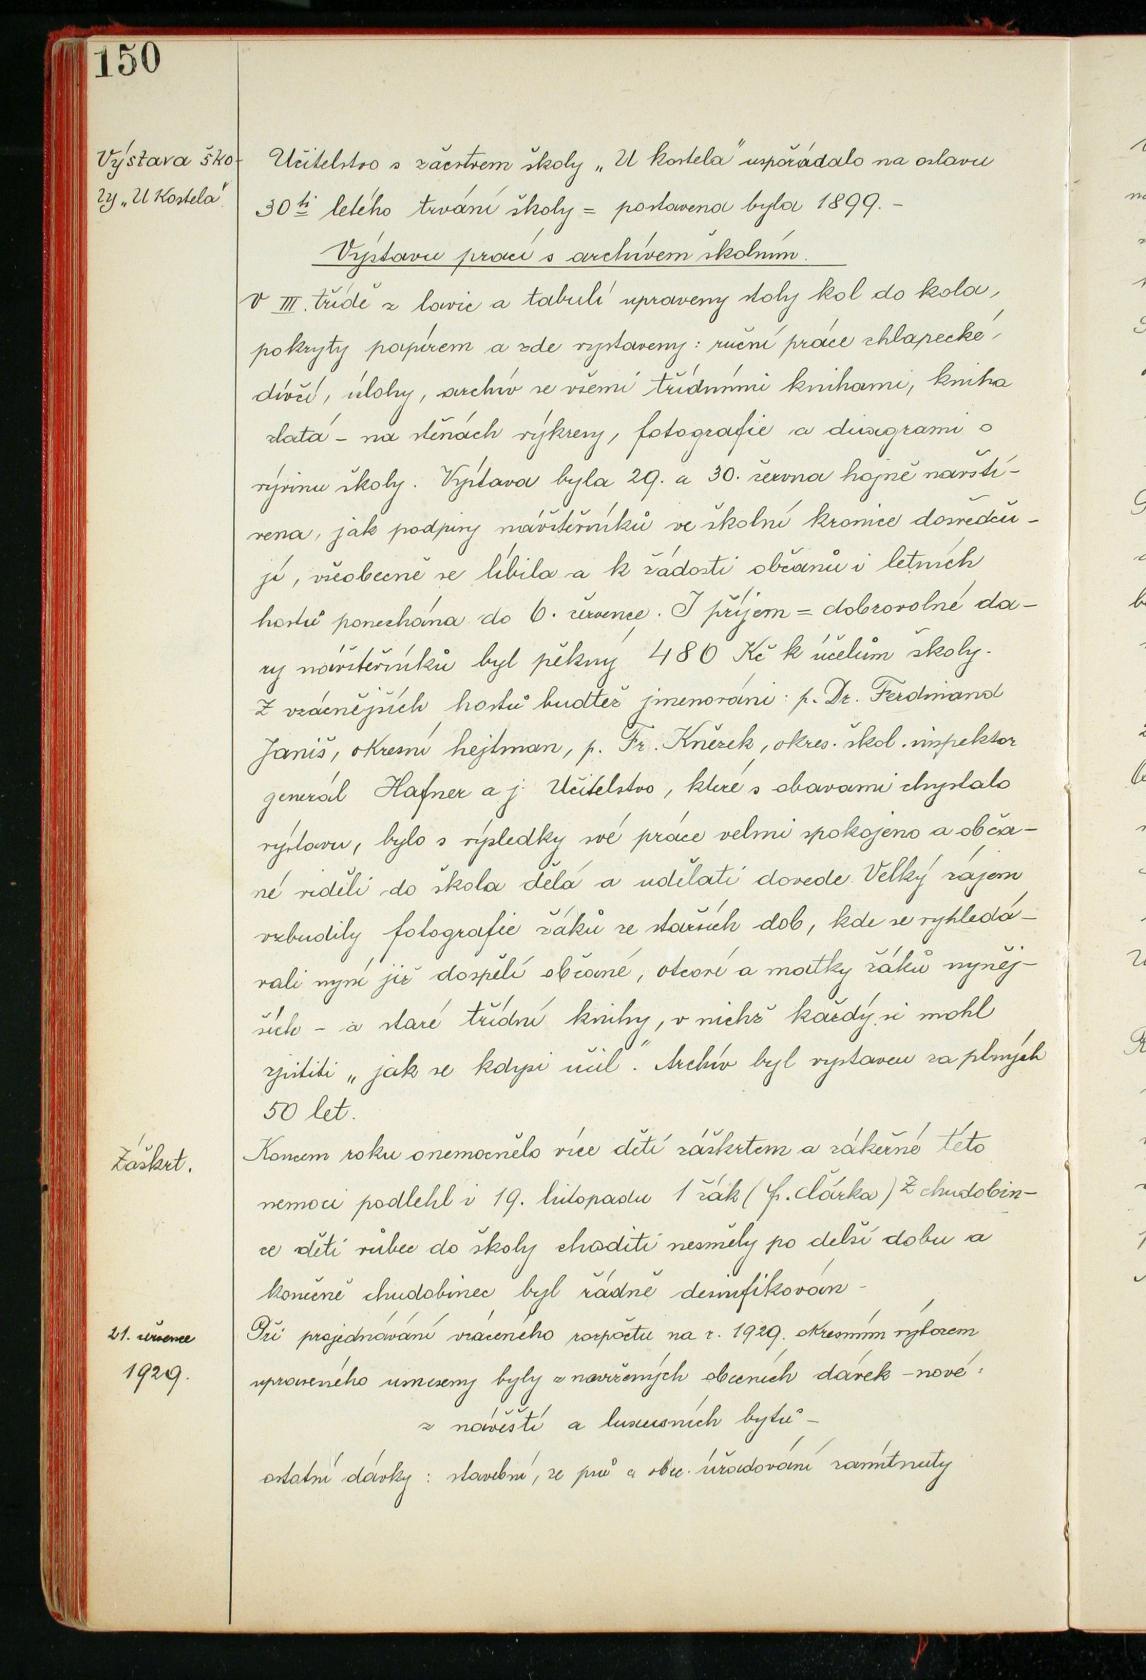 150
Výstava ško-
ly „U Kostela"
Učitelstvo s žáctvem školy „U kostela" uspořádalo na oslavu
30ti letého trvání školy = postavena byla 1899. –
Výstavu prací s archívem školním.
V III. třídě z lavic a tabulí upraveny stoly kol do kola,
pokryty papírem a zde vystaveny: ruční práce chlapecké,
dívčí, úlohy, archív se všemi třídními knihami, kniha
zlatá – na stěnách výkresy, fotografie a diagrami o
vývinu školy. Výstava byla 29. a 30. června hojně navští-
vena, jak podpisy návštěvníků ve školní kronice dosvědču-
jí, všeobecně se líbila a k žádosti občanů i letních
hostů ponechána do 6. července. I příjem = dobrovolné da-
ry návštěvníků byl pěkný 480 Kč k účelům školy.
Z vzácnějších hostů budtež jmenováni: p. Dr. Ferdinand
Janiš, okresní hejtman, p. Fr. Kněžek, okres. škol. inspektor
generál Hafner a j. Učitelstvo, které s obavami chystalo
výstavu, bylo s výsledky své práce velmi spokojeno a obča-
né viděli co škola dělá a udělati dovede. Velký zájem
vzbudily fotografie žáků ze starších dob, kde se vyhledá-
vali nyní již dospělí občané, otcové a matky žáků nyněj-
ších – a staré třídní knihy, v nichž každý si mohl
zjistiti „jak se kdysi učil". Archív byl vystaven za plných
50 let.
Záškrt.
Koncem roku onemocnělo více dětí záškrtem a zákeřné této
nemoci podlehl i 19. listopadu 1 žák (f. Clárka) Z chudobin-
ce děti vůbec do školy choditi nesměly po delší dobu a
konečně chudobinec byl řádně desinfikován –
21. července
1929.
Při projednávání vráceného rozpočtu na r. 1929. okresním výborem
upraveného umeseny byly z navržených obecních dávek – nové:
z návěští a luxusních bytů –
ostatní dávky: stavební, ze psů a obec. úřadování zamítnuty